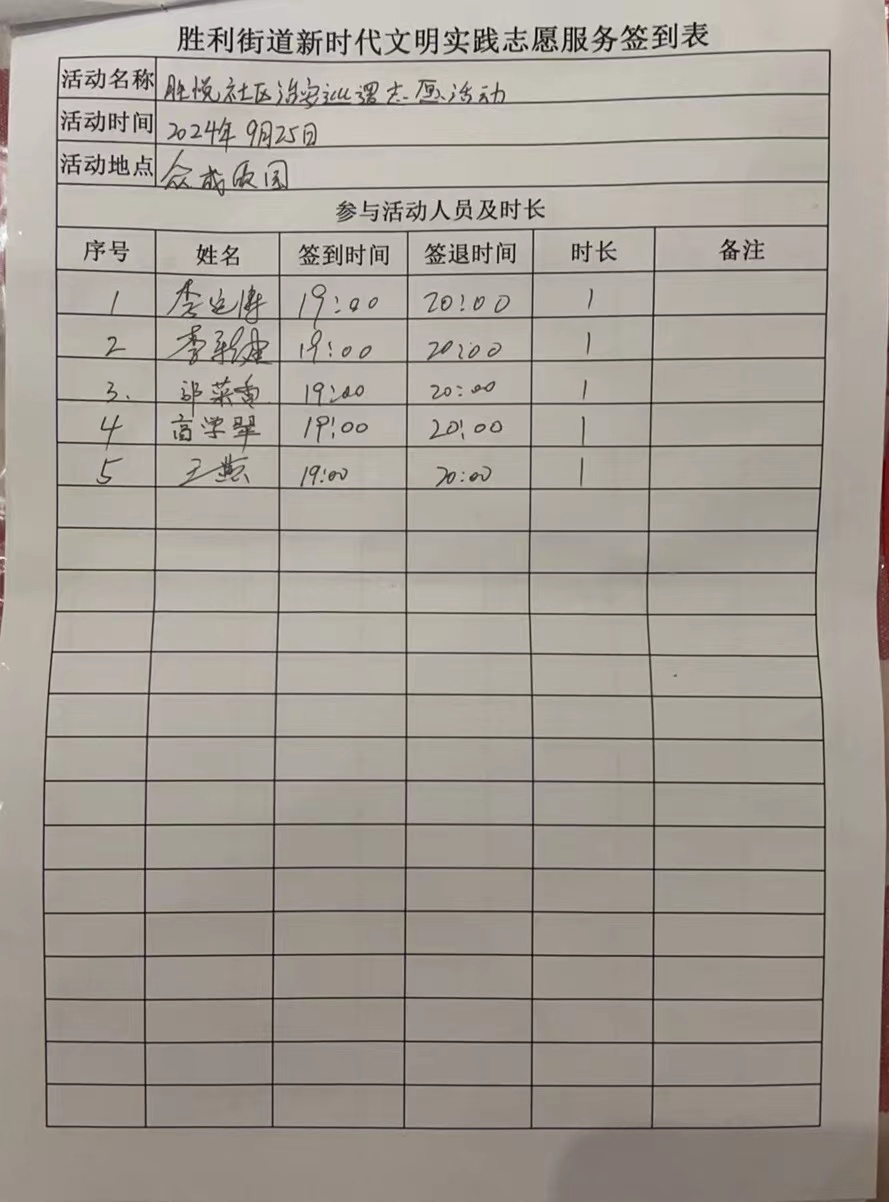 胜利街道新时代文明实践志愿服务签到表
活动名称 胜悦社区治安巡逻志愿活动
活动时间 2024年9月25日
活动地点 众成
参与活动人员及时长
序号 姓名 签到时间 签退时间 时长 备注
1 李 19:00 20:00 1
2 李 19:00 20:00 1
3. 菜香 19:00 20:00 1
4 高学翠 19:00 20:00 1
5 王燕 19:00 20:00 1